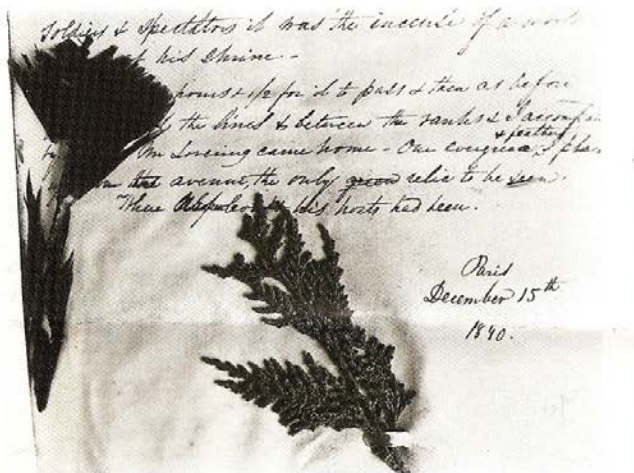 soldiers & spectators it was the incense of a
his shrine -
hours & 1/2 for it to pass & then as before
the lines & between the ranks &
Loveing came home - Our evergreen &
& feather
avenue, the only green relic to be seen.
Where Napoleon & his hosts had been.
Paris
December 15th
1840.